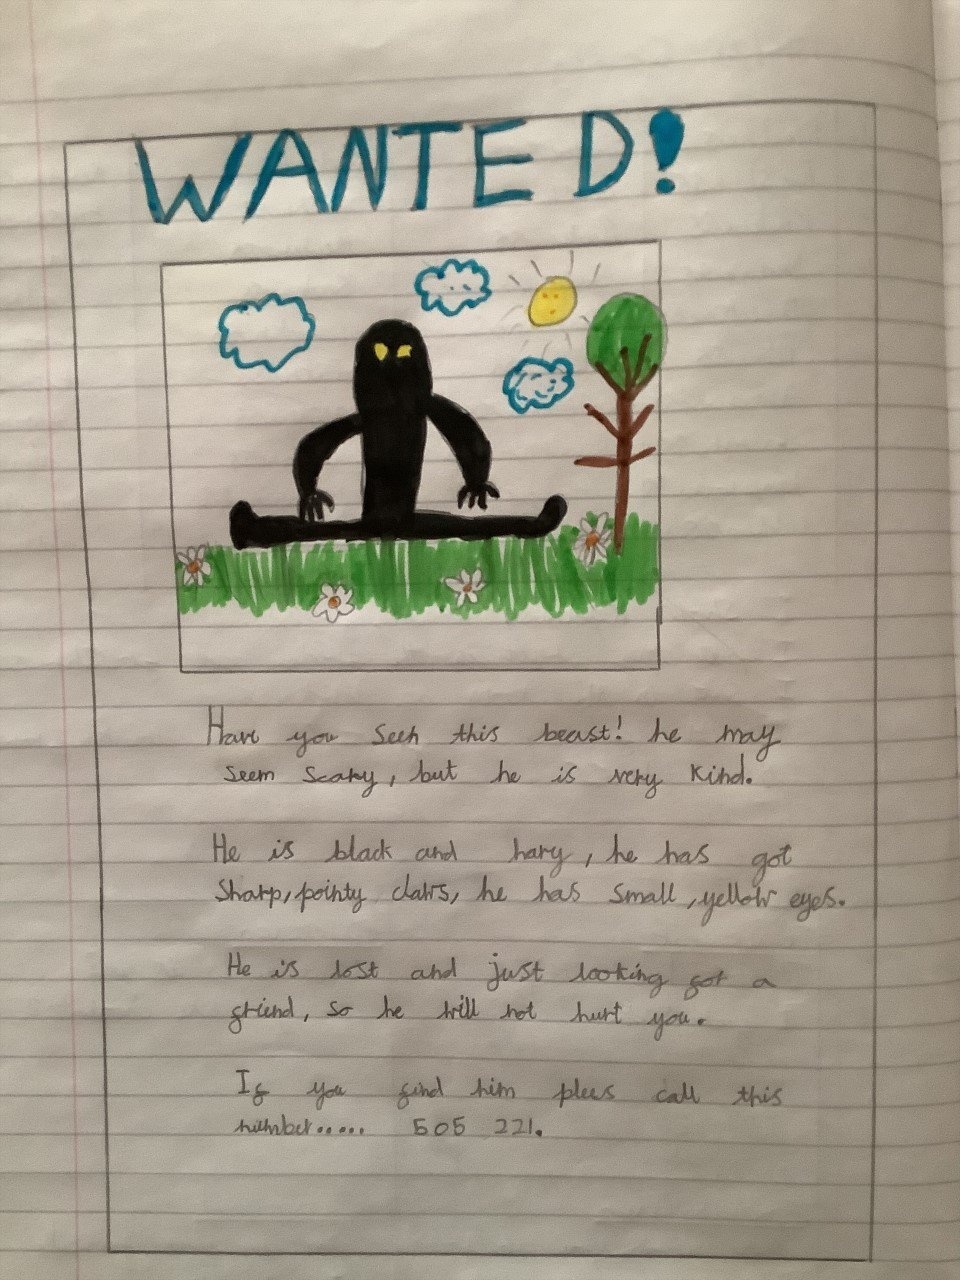 WANTED!
Have you seen this beast! he may
seem scary, but he is very kind.
He is black and hary, he has got
sharp, pointy claws, he has small, yellow eyes.
He is lost and just looking for a
friend, so he will not hurt you.
If you find him plees call this
number..... 505 221.